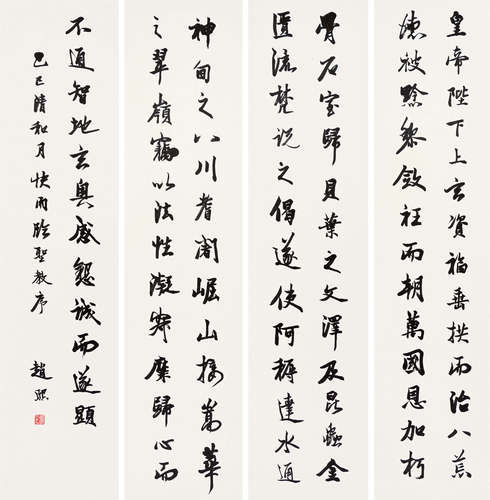 皇帝陛下上玄資福垂拱而治八荒
德被黔黎斂衽而朝萬國恩加朽
骨石室歸貝葉之文澤及昆蟲金
匱流梵說之偈遂使阿耨達水通
神甸之八川耆闍崛山接嵩華
之翠嶺竊以法性凝寂靡歸心而
不通智地玄奧感懇誠而遂顯
己巳清和月快雨臨聖教序 趙熙